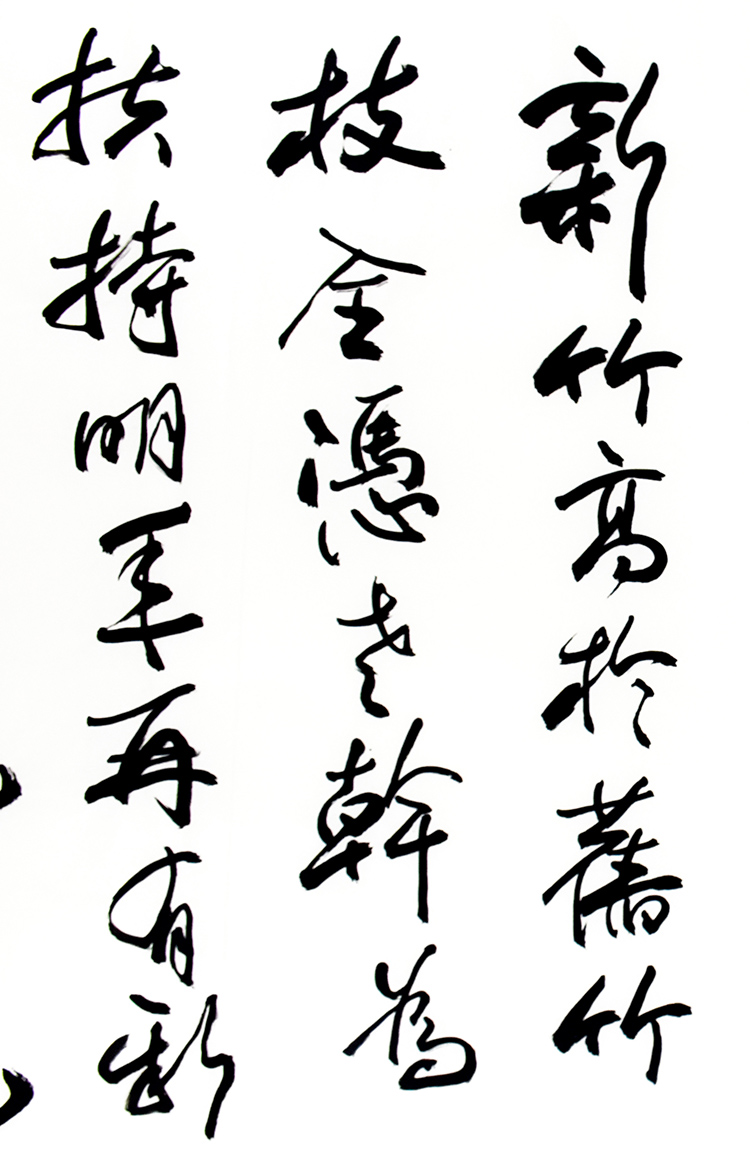 新竹高於舊竹
枝全憑老幹為
扶持明年再有新